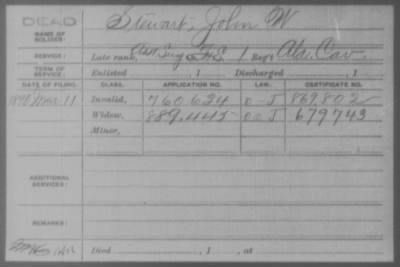 DEAD
NAME OF SOLDIER: Stewart, John W
SERVICE: Late rank, Ass Surg F&S 1 Reg't Ala. Cav
TERM OF SERVICE: Enlisted , 1 Discharged , 1
DATE OF FILING. CLASS. APPLICATION NO. LAW. CERTIFICATE NO.
Mar 11 Invalid, 760.634 869.802
Widow, 889.445 679743
Minor,
ADDITIONAL SERVICES:
REMARKS:
Died , 1 , at